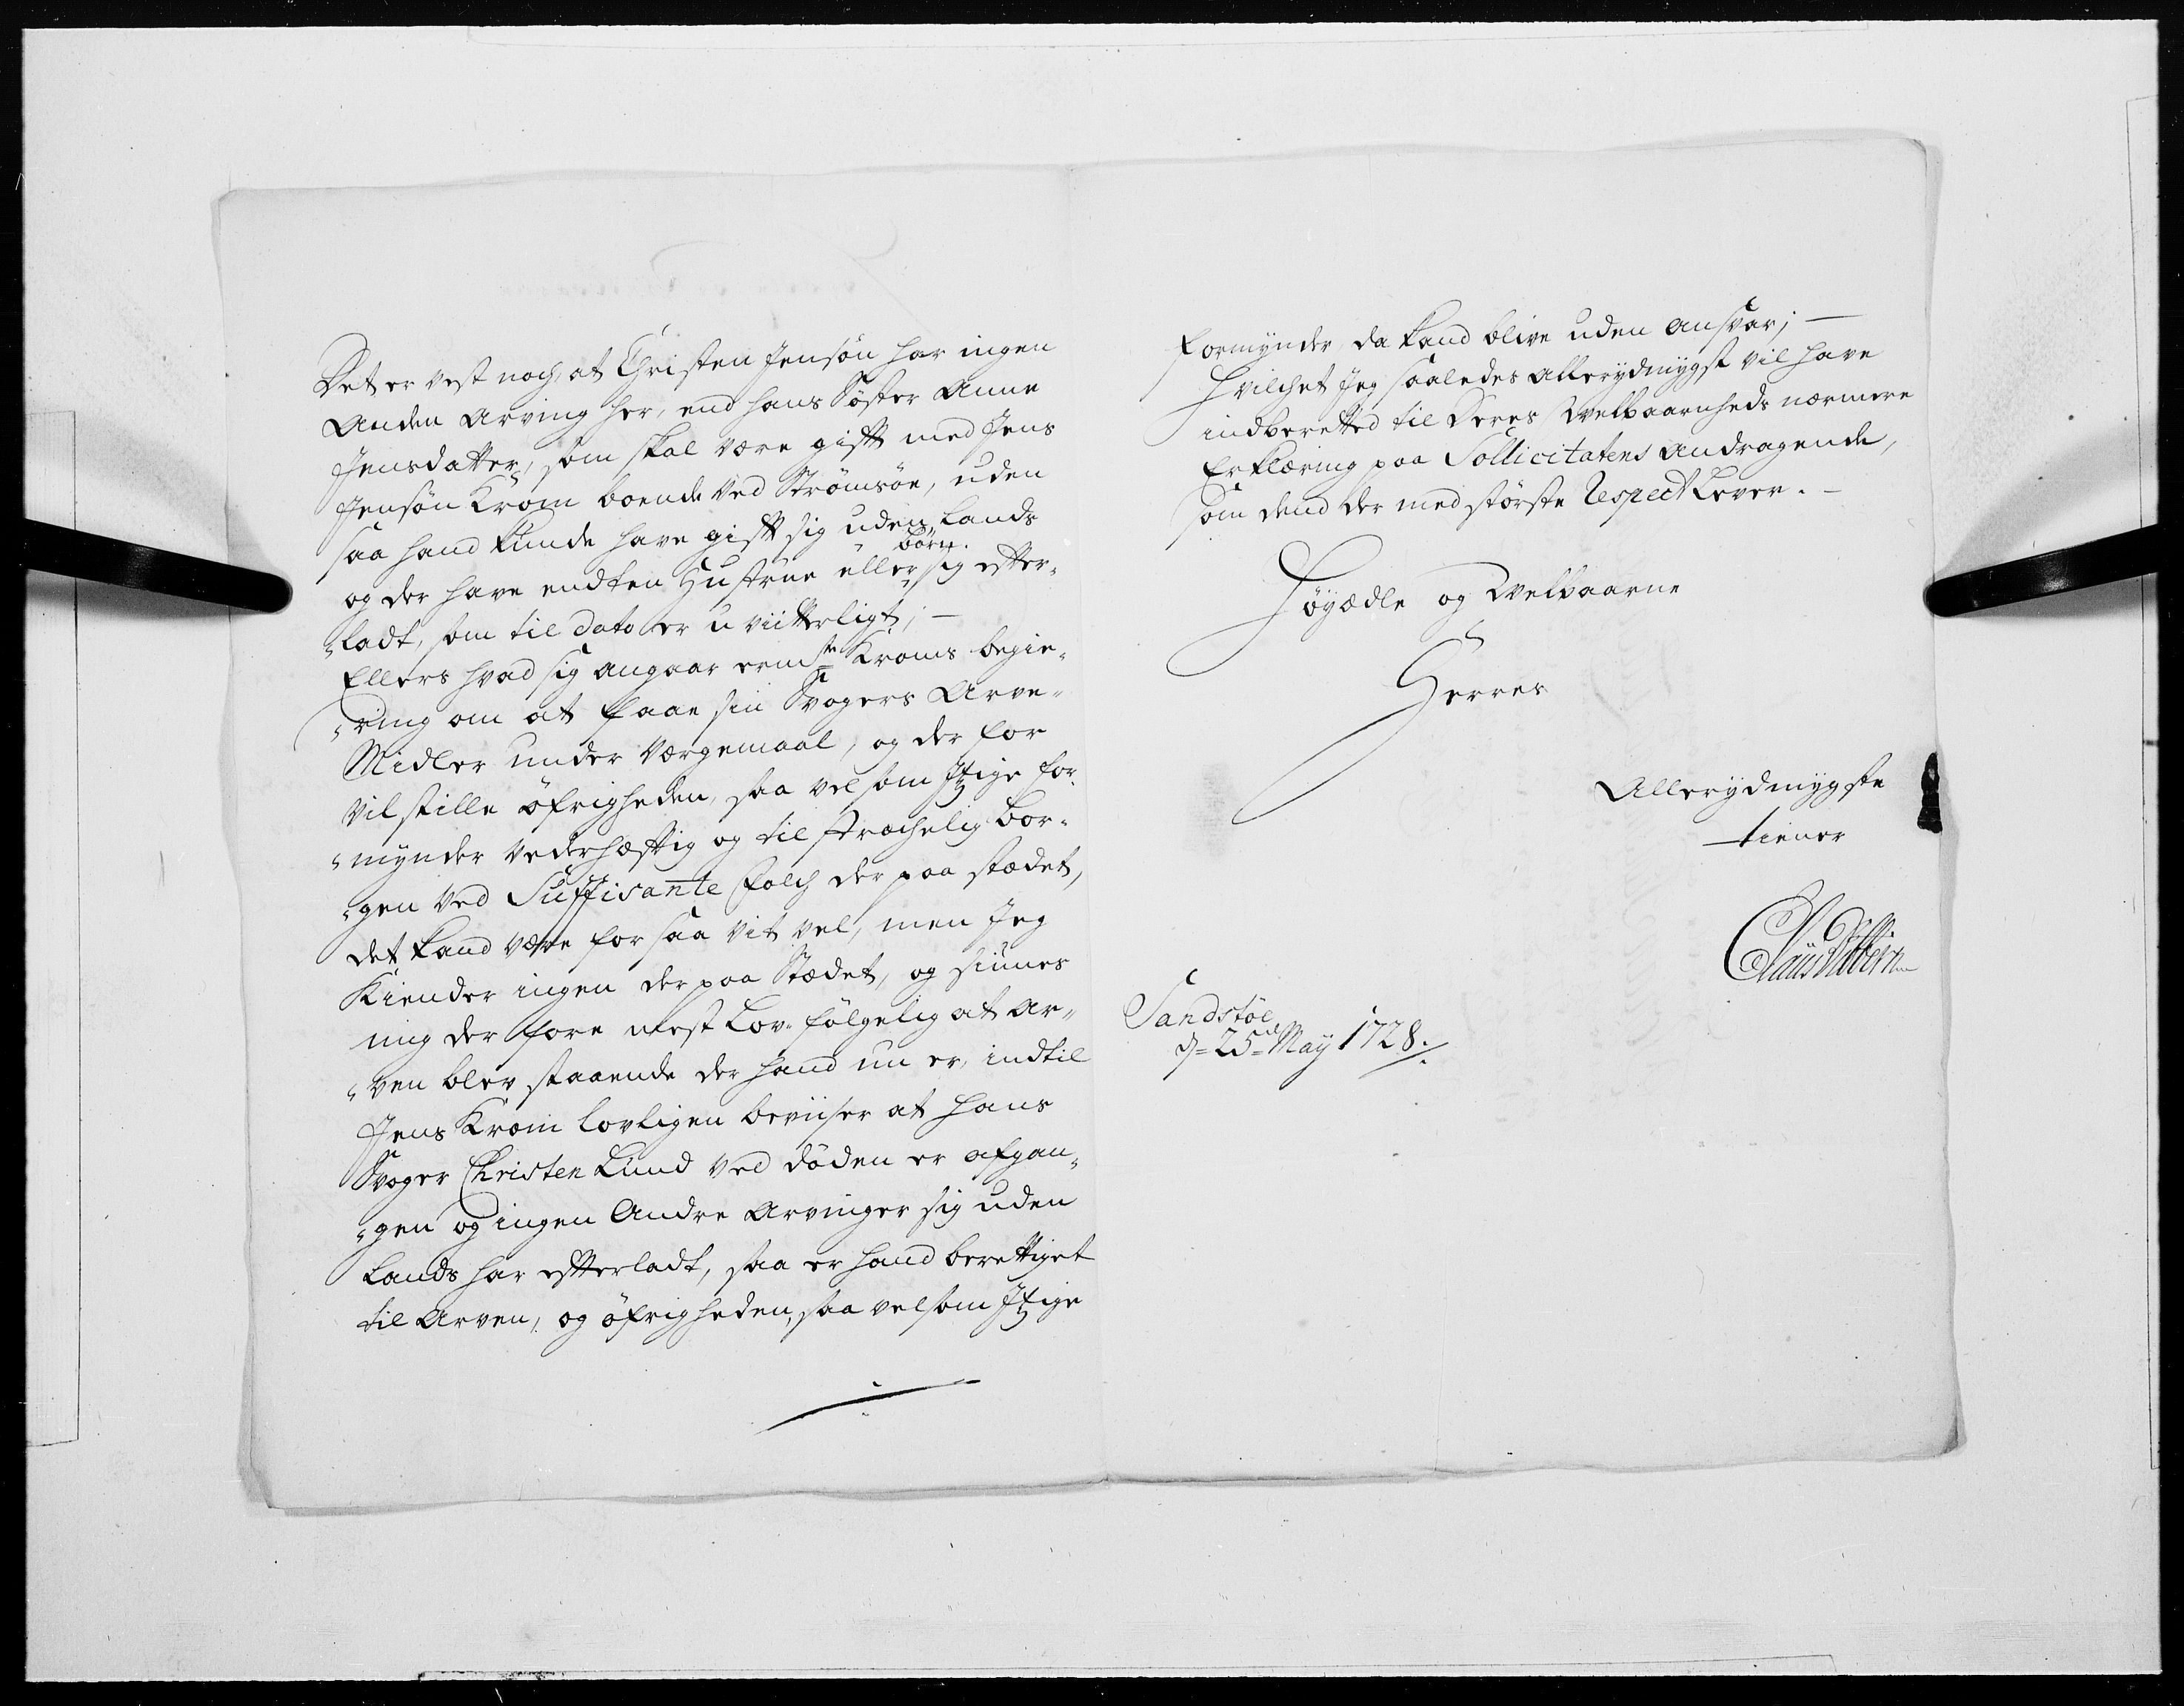 Det er vest noch, at Christen Jensøn har ingen
Anden Arving her, end hans Søster Anne
Jensdatter, som skal være gifft med Jens
Jensøn Krom boende ved Strømsøe, uden
saa hand kunde have gifft sig uden Lands
og der have endten Hustrue eller sig efter¬
børn.
"ladt, som til dato er u viitterligt; —
Ellers hvad sig angaar ermte Kroms begie¬
"ring om at faae sin Svogers Arve¬
Midler under Værgemaal, og der for
vil stille öfrigheden, saa vel som Itzige for¬
"mynder vederhæfftig og tilstræchelig bor¬
"gen ved Suffisante folch der paa stædet,
det kand være for saa vit vel, men Jeg
Kiender ingen der paa Stædet, og siunes
mig der fore mest Lov-følgelig at Ar¬
"ven blev staaende der hand nu er, indtil
Jens Krom lovligen beviiser at hans
Svoger Christen Lund ved døden er afgan¬
"gen og ingen Andre Arvinger sig uden
Lands har efterladt, saa er hand berettiget
til Arven, og öfrigheden, saa velsom Itzige
formynder da kand blive uden ansvar; —
Hvilchet Jeg saaledes allerydmygst vil have
indberetted til Deres Welbaarenheds nærmere
Erklæring paa Sollicitatens Andragende,
som dend der med største Respect Lever. —
Høyædle og Welbaarne
Herres
Allerydmygste
tiener
Sandstøe
d= 25= May 1728.